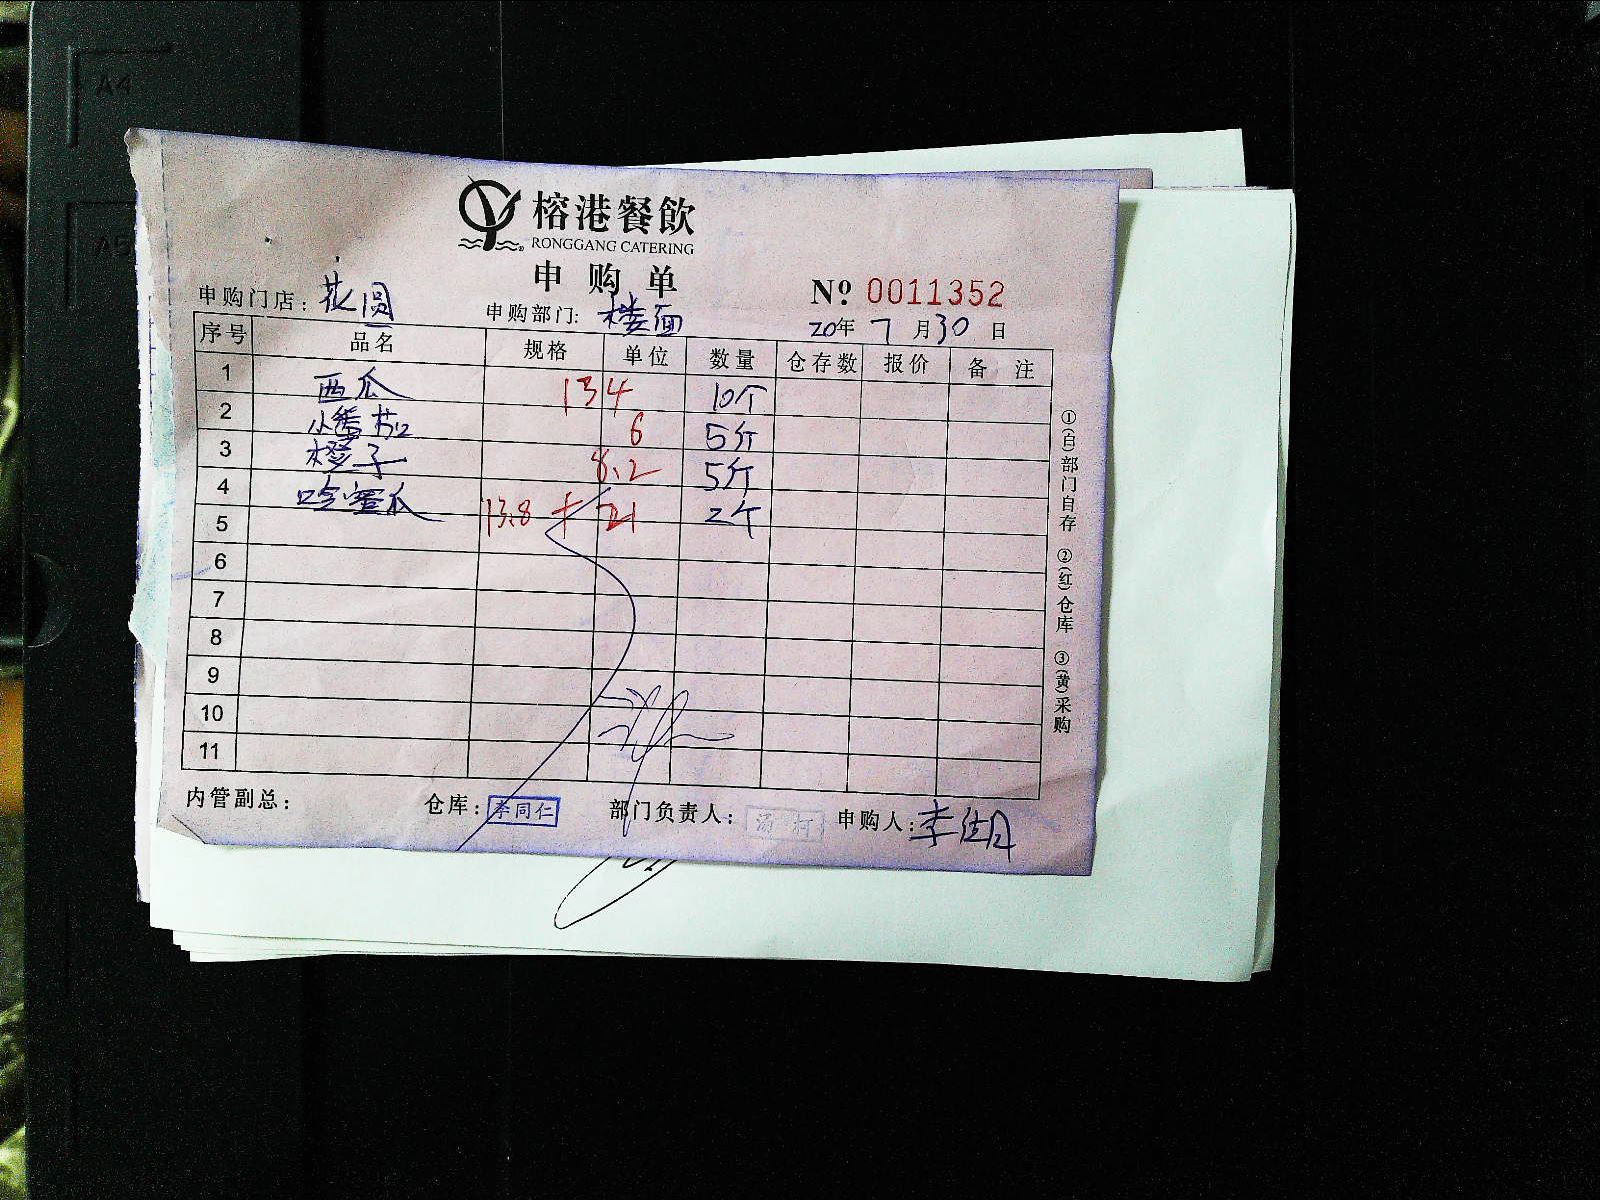 A4
A5
榕港餐飲
RONGGANG CATERING
申购单
№ 0011352
申购门店：花圆
申购部门：楼面
20年 7月30日
序号 品名 规格 单位 数量 仓存数 报价 备注
1 西瓜 134 10个
2 小番茄 6 5斤
3 橙子 8.2 5斤
4 哈蜜瓜 13.8 + 21 2个
5
6
7
8
9
10
11
①(白)部门自存 ②(红)仓库 ③(黄)采购
内管副总： 仓库：李同仁 部门负责人：汤柯 申购人：李佳月